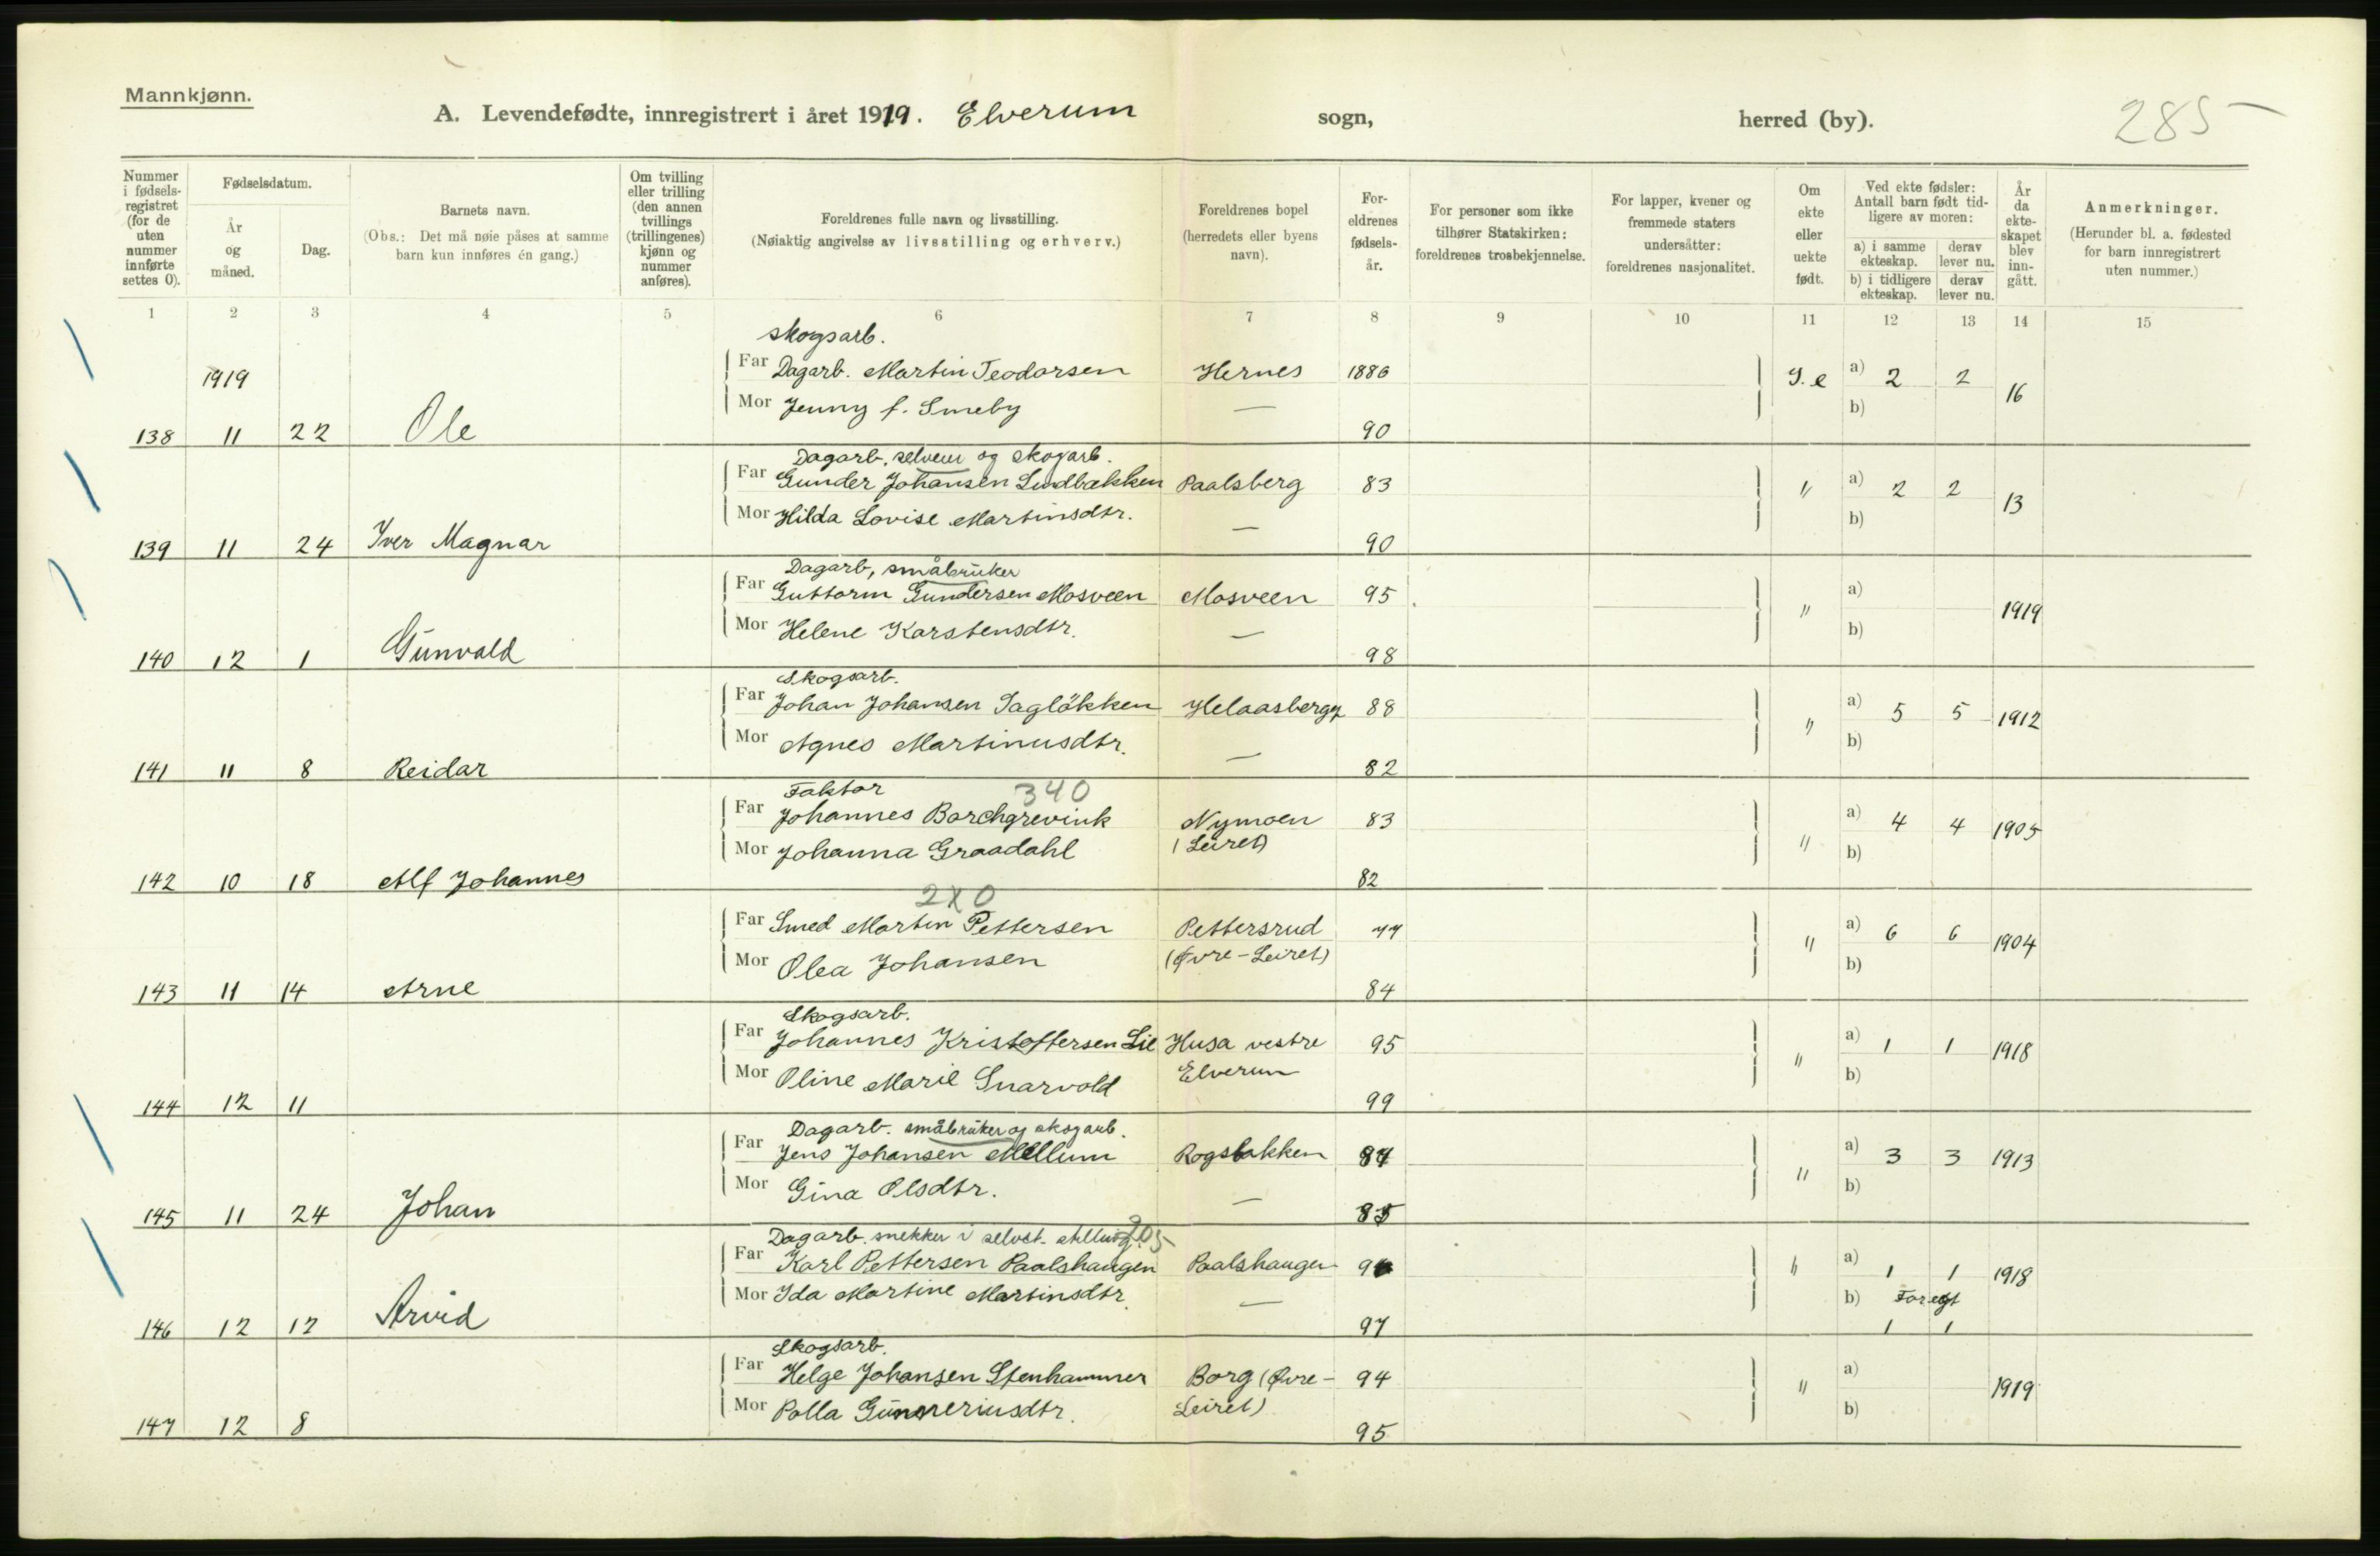 Mannkjønn.
A. Levendefødte, innregistrert i året 1919. Elverum sogn, herred (by). 285
Nummer i fødselsregistret (for de uten nummer innførte settes 0).
Fødselsdatum.
År og måned.
Dag.
Barnets navn.
(Obs.: Det må nøie påses at samme barn kun innføres én gang.)
Om tvilling eller trilling (den annen tvillings (trillingenes) kjønn og nummer anføres).
Foreldrenes fulle navn og livsstilling.
(Nøiaktig angivelse av livsstilling og erhverv.)
Foreldrenes bopel (herredets eller byens navn).
Foreldrenes fødselsår.
For personer som ikke tilhører Statskirken: foreldrenes trosbekjennelse.
For lapper, kvener og fremmede staters undersåtter: foreldrenes nasjonalitet.
Om ekte eller uekte født.
Ved ekte fødsler: Antall barn født tidligere av moren:
a) i samme ekteskap. derav lever nu.
b) i tidligere ekteskap. derav lever nu.
År da ekteskapet blev inngått.
Anmerkninger.
(Herunder bl. a. fødested for barn innregistrert uten nummer.)
1 2 3 4 5 6 7 8 9 10 11 12 13 14 15
skogsarb.
1919 Far Dagarb. Martin Teodorsen Hernes 1886 e a) 2 2 16
Mor Jenny f. Smeby — b)
138 11 22 Ole 90
Dagarb, selveier og skogarb.
Far Gunder Johansen Lindbækken Paalsberg 83 " a) 2 2 13
Mor Hilda Lovise Martinsdtr. — b)
139 11 24 Iver Magnar 90
Dagarb, småbruker
Far Guttorm Gundersen Mosveen Mosveen 95 " a) 1919
Mor Helene Karstensdtr. — b)
140 12 1 Gunvald 98
Skogsarb.
Far Johan Johansen Sagløkken Helaasberget 88 " a) 5 5 1912
Mor Agnes Martinusdtr. — b)
141 11 8 Reidar 82
Faktor 340
Far Johannes Borchgrevink Nymoen 83 " a) 4 4 1905
Mor Johanna Graadahl (Leiret) b)
142 10 18 Alf Johannes 82
2x0
Far Smed Martin Pettersen Pettersrud 77 " a) 6 6 1904
Mor Olea Johansen (Øvre-Leiret) b)
143 11 14 Arne 84
Skogsarb.
Far Johannes Kristoffersen Lie Husa vestre 95 " a) 1 1 1918
Mor Oline Marie Snarvold Elverum b)
144 12 11 99
Dagarb. småbruker og skogarb.
Far Jens Johansen Mellum Rogsbakken 84 " a) 3 3 1913
Mor Gina Olsdtr. — b)
145 11 24 Johan 85
Dagarb. snekker i selvst. stilling. 205
Far Karl Pettersen Paalshaugen Paalshaugen " a) 1 1 1918
Mor Ida Martine Martinsdtr. — b) For egt
146 12 12 Arvid 97 1 1
Skogsarb.
Far Helge Johansen Stenhammer Borg (Øvre- 94 " a) 1919
Mor Palla Gunneriusdtr. Leiret) b)
147 12 8 95